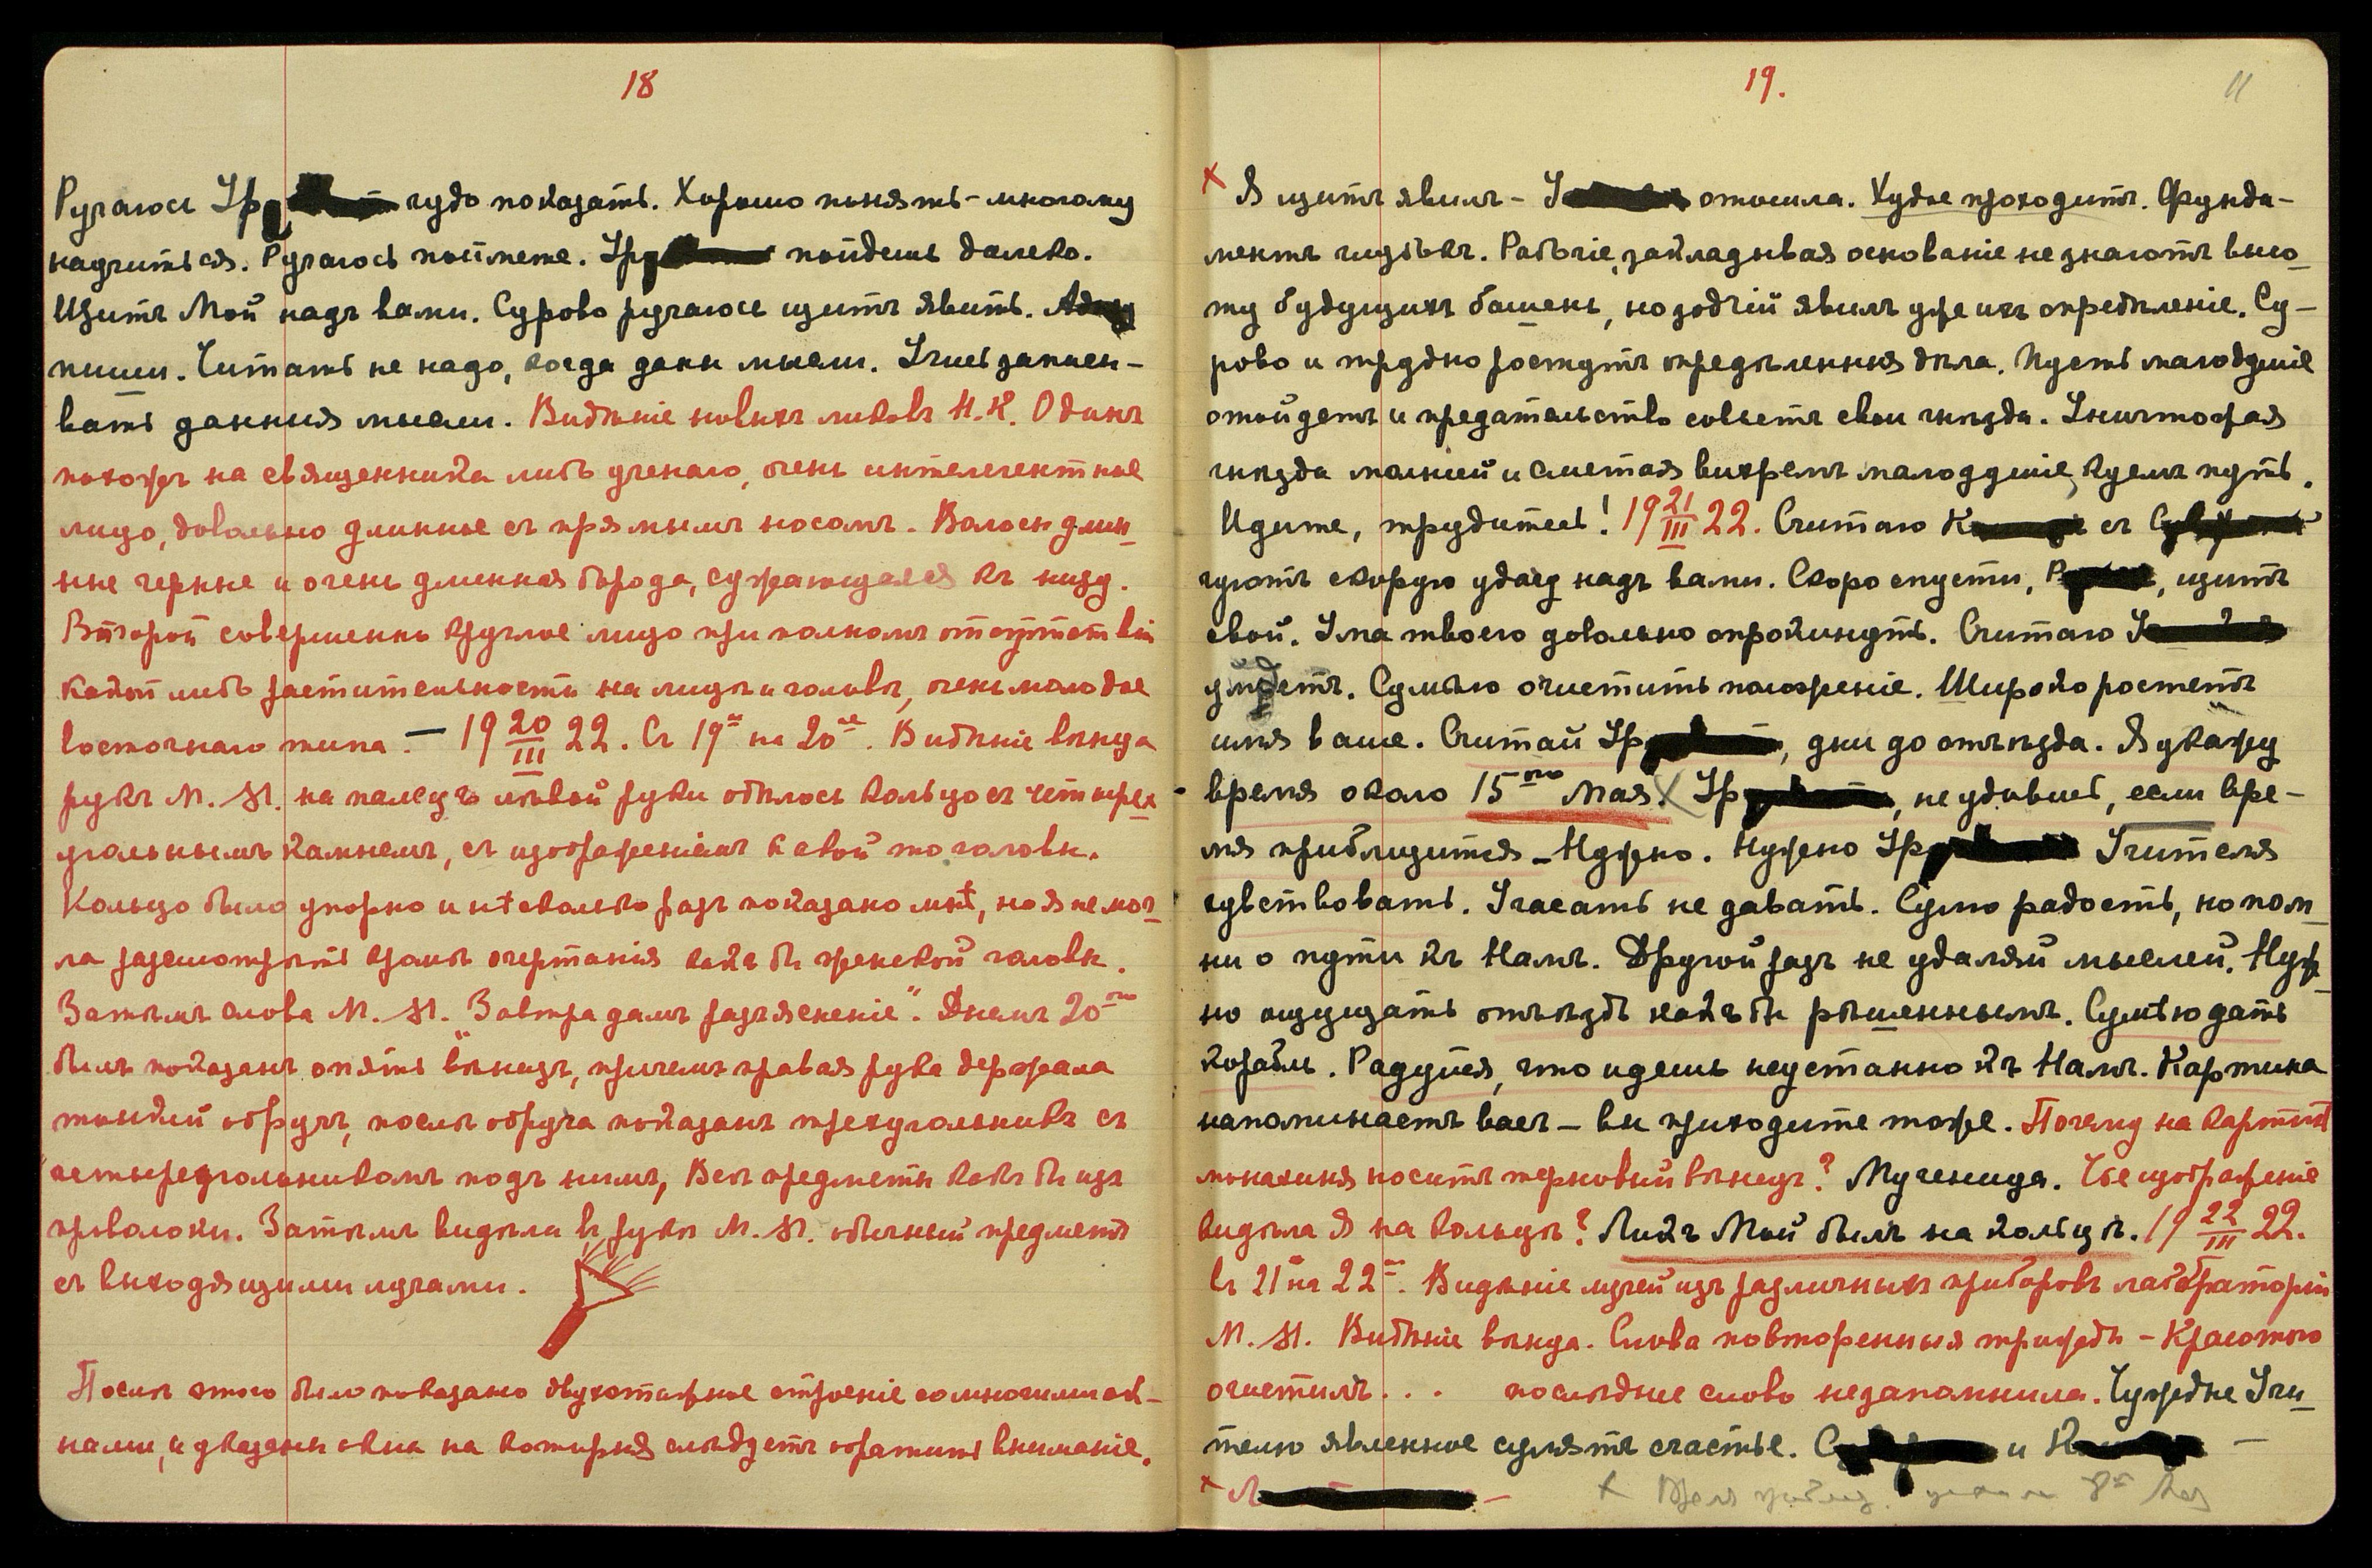 18
Ручаюсь Ур чудо показать. Хорошо понять – многому
научиться. Ручаюсь поймете. Ур пойдешь далеко.
Щитъ Мой надъ вами. Сурово ручаюсь щитъ явить.
пиши. Читать не надо, когда даны мысли. Учись записы-
вать данныя мысли. Видѣніе новыхъ ликовъ Н.К. Одинъ
похожъ на священника либо ученаго, очень интелегентное
лицо, довольно длинное съ прямымъ носомъ. Волосы длин-
ные черные и очень длинная борода, сужающаяся къ низу.
Второй совершенно круглое лицо при полномъ отсутствіи
какой либо растительности на лицѣ и головѣ, очень молодое
восточнаго типа. – 19 20/III 22. Съ 19го на 20ое. Видѣніе вѣнца
рукъ М. М. на палецъ лѣвой руки одѣлось кольцо съ четырех-
угольнымъ камнемъ, съ изображеніемъ головы.
Кольцо было упорно и нѣсколько разъ показано мнѣ, но я не мог-
ла разсмотрѣть кромѣ очертанія какъ бы женской головы.
Затѣмъ слова М. М. "Завтра дамъ разъясненіе". Днемъ 20го
былъ показанъ опять вѣнецъ, причемъ правая рука держала
тонкій обручъ, послѣ обруча показанъ треугольникъ съ
четыреугольникомъ подъ нимъ, Всѣ предметы какъ бы изъ
проволоки. Затѣмъ видѣла въ рукѣ М. М. обычный предметъ
съ выходящими лучами.
Послѣ этого было показано двухэтажное строеніе со многими ок-
нами, и указаны окна на которыя слѣдуетъ обратить вниманіе.
19.
11
х Я щитъ явилъ – У отошла. Худое проходитъ. Фунда-
ментъ глубокъ. Рабочіе, закладывая основаніе не знаютъ высо-
ту будущихъ башенъ, но зодчій явилъ уже ихъ опредѣленіе. Су-
рово и трудно ростутъ опредѣленныя дѣла. Пусть малодушіе
отойдетъ и предательство совьетъ свои гнѣзда. Уничтожая
гнѣзда молніей и сметая вихремъ малодушіе, куемъ путь.
Идите, трудитесь! 19 21/III 22. Считаю К съ С
чуютъ скорую удачу надъ вами. Скоро спусти, Р, щитъ
свой. Ума твоего довольно опрокинуть. Считаю У
уйдетъ. Сумѣю очистить положеніе. Широко ростетъ
имя ваше. Считай Ур, дни до отъѣзда. Я укажу
время около 15го мая. х Ур, не удивись, если вре-
мя приблизится – Нужно. Нужно Ур Учителя
чувствовать. Угасать не давать. Сулю радость, но пом-
ни о пути къ Намъ. Другой разъ не удаляй мыслей. Нуж-
но ощущать отъѣздъ какъ бы рѣшеннымъ. Сумѣю дать
корабль. Радуйся, что идешь неустанно къ Намъ. Картина
напоминаетъ васъ – вы приходите тоже. Почему на картинѣ
монахиня носитъ терновый вѣнецъ? Мученица. Чье изображеніе
видѣла я на кольцѣ? Ликъ Мой былъ на кольцѣ. 19 22/III 22.
Съ 21 на 22ое. Видѣніе лучей изъ различныхъ приборовъ лабораторіи
М. М. Видѣніе вѣнца. Слова повторенныя трижды – Красотою
очистимъ . . . послѣднее слово не запомнила. Чуждые Учи-
телю явленное сулятъ счастье. С и К –
х Л –
х